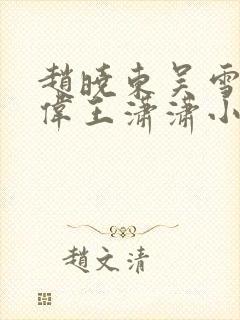 趙曉東吳雪
偉王瀟瀟小
趙文清